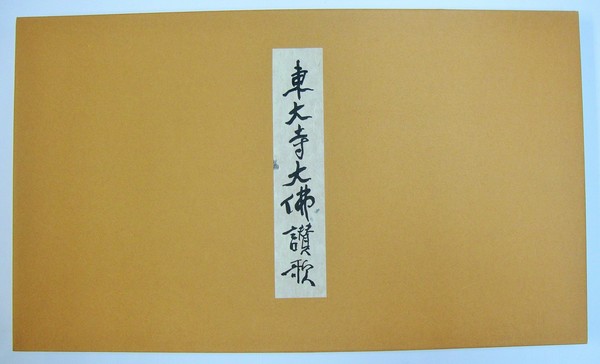 東大寺大佛讃歌